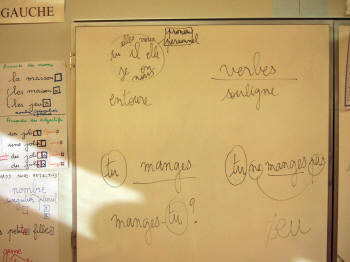 GAUCHE
la maison
les maison s
les jeu x
un joli
une joli e
des joli s
nombre
singulier pluriel
petite fille
pronom
personnel
elles nous
tu il elle
je on
vous
entoure
verbes
souligne
tu manges
tu ne manges pas
manges-tu ?
jeu